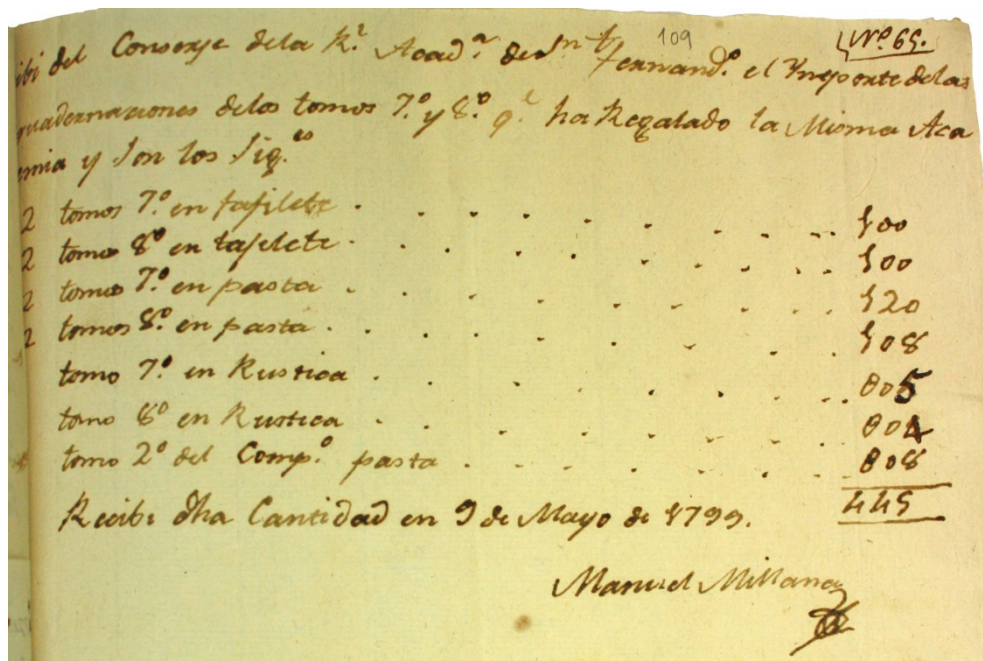 109
Nº 65.
ibi del Conserje dela R.l Acad.a de Sn Fernand.o el Ymporte delas
quadernaziones delos tomos 7.º y 8.º q.e ha Regalado la Misma Aca
emia y Son los Sig.es
2 tomos 7.º en tafilete . . . . . . . . . 100
2 tomos 8º en tafilete . . . . . . . . . 100
2 tomos 7.º en pasta . . . . . . . . . 120
2 tomos 8.º en pasta . . . . . . . . . 108
tomo 7.º en Rustica . . . . . . . . . 005
tomo 8º en Rustica . . . . . . . . . 004
tomo 2º del Comp.º pasta . . . . . . . 008
445
Recibi dha Cantidad en 9 de Mayo de 1799.
Manuel Millana